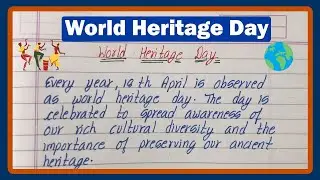 World Heritage Day
World Heritage Day
Every year, 18 th April is observed
as world heritage day. The day is
celebrated to spread awareness of
our rich cultural diversity and the
importance of preserving our ancient
heritage.